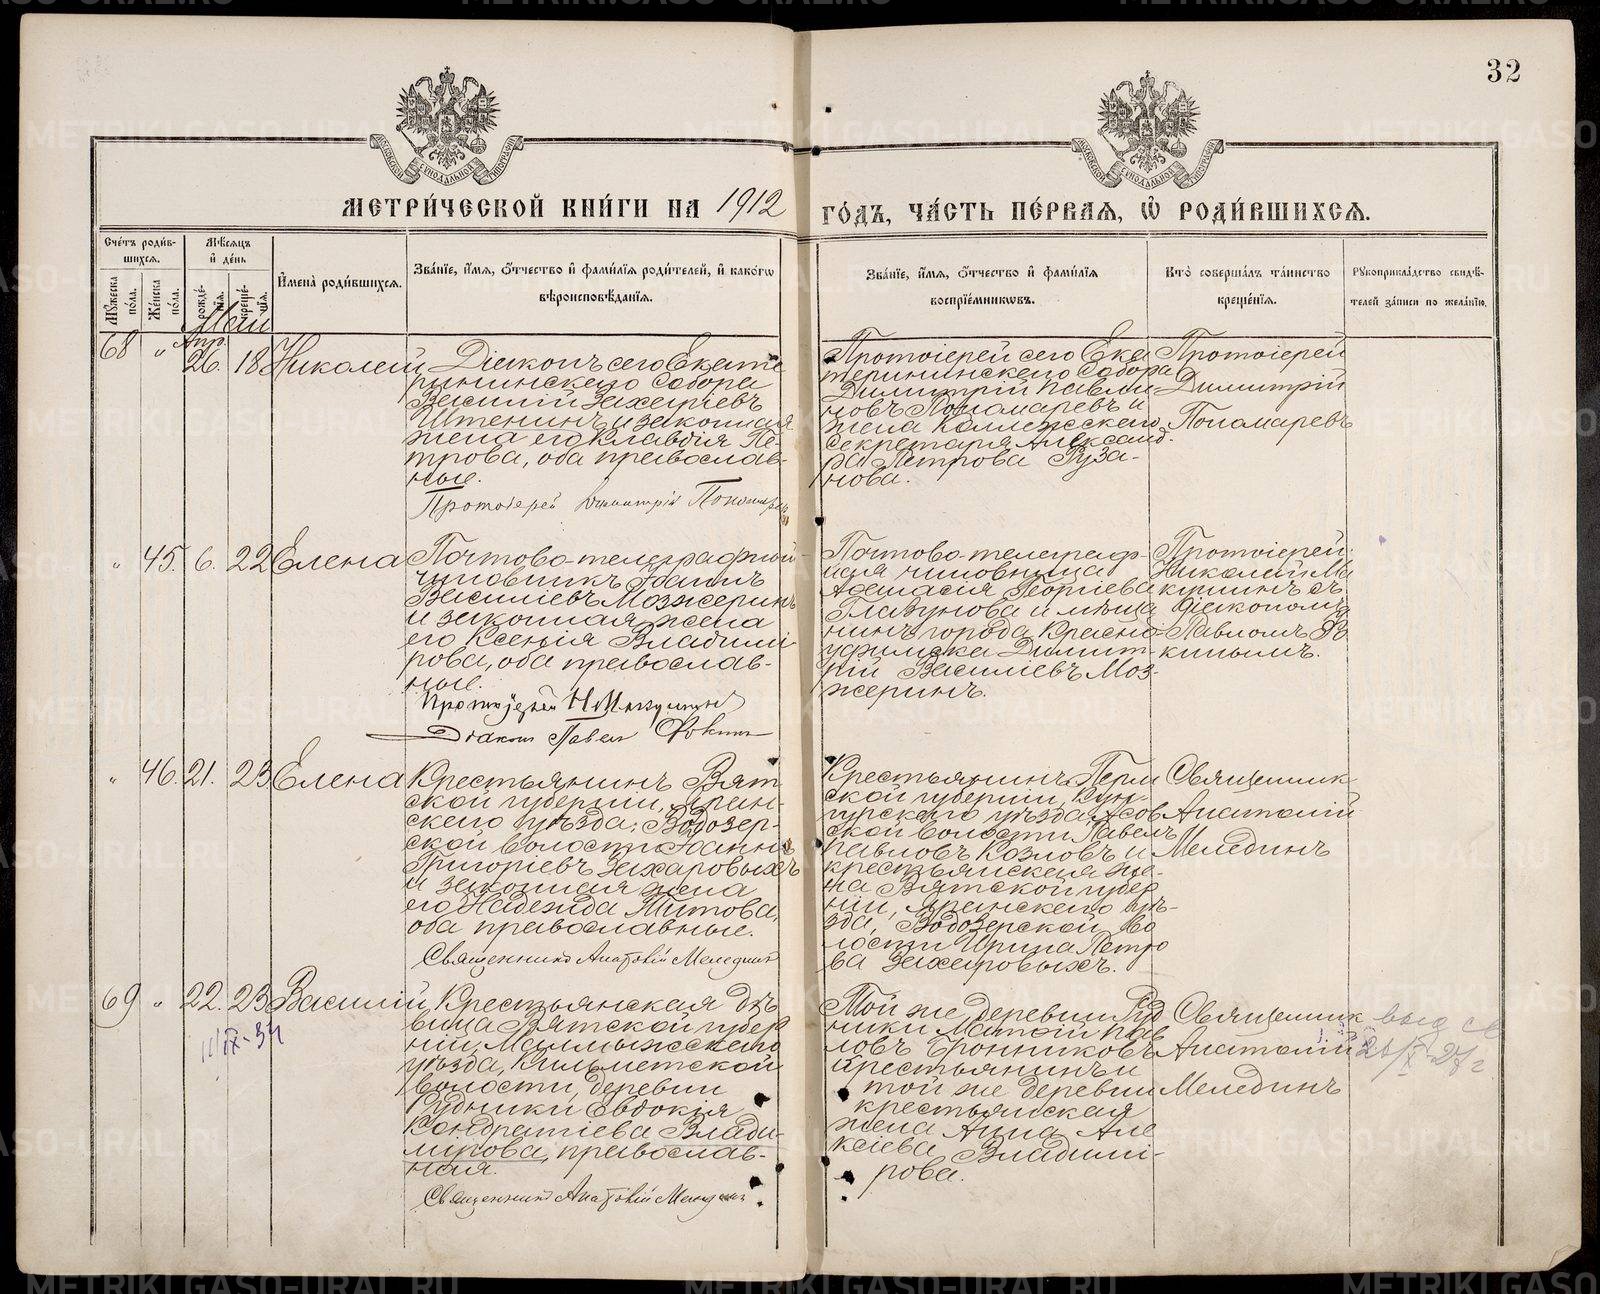 32
МЕТРИ́ЧЕСКОЙ КНИ́ГИ НА 1912
ГО́ДЪ, ЧА́СТЬ ПЕ́РВАЯ, Ѡ РОДИ́ВШИХСЯ.
Сче́тъ роди́в-
шихся.
Мѣ́сяцъ
и҆ де́нь
Мꙋ́жеска по́ла.
Же́нска по́ла.
рожде́нїя.
креще́нїя.
И҆мена̀ роди́вшихся.
Зва́нїе, и҆́мя, ѻ҆́тчество и҆ фами́лїя роди́телей, и҆ како́гѡ
вѣроисповѣ́данїя.
Зва́нїе, и҆́мя, ѻ҆́тчество и҆ фами́лїя
воспрїе́мникѡвъ.
Кто̀ соверша́лъ та́инство
креще́нїя.
Рꙋкоприкла́дство свидѣ́-
телей за́писи по жела́нїю.
Май
68 " Апр. 26. 18 Николай
Діаконъ сего Екате
рининскаго Собора
Василій Захаріевъ
Штенинъ и законная
жена его Клавдія Пе-
трова, оба православ-
ные.
Протоіерей Димитрій Пономаревъ
Протоіерей сего Ека
терининскаго Собора
Димитрій Павли-
новъ Пономаревъ и
жена Коллежскаго
Секретаря Александ-
ра Петрова Руза-
нова.
Протоіерей
Димитрій
Пономаревъ
" 45. 6. 22 Елена
Почтово-телеграфный
чиновникъ Іоаннъ
Василіевъ Мозжеринъ
и законная жена
его Ксенія Владимі-
рова, оба православ-
ные.
Протоіерей Н. Мякушинъ
Діаконъ Павелъ Фокинъ
Почтово-телеграф-
ная чиновница
Афанасія Георгіева
Глазунова и мѣща
нинъ города Красно-
уфимска Димит-
рій Василіевъ Моз-
жеринъ.
Протоіерей
Николай Мя
кушинъ съ
діакономъ
Павломъ Фо
кинымъ.
" 46. 21. 23 Елена
Крестьянинъ Вят
ской губерніи, Яран-
скаго уѣзда, Водозер-
ской волости Іоаннъ
Григоріевъ Захаровыхъ
и законная жена
его Надежда Титова,
оба православные.
Священникъ Анатолій Мелединъ
Крестьянинъ Перм
ской губерніи, Кун-
гурскаго уѣзда, Асов
ской волости Павелъ
Павловъ Козловъ и
крестьянская же-
на Вятской губер
ніи, Яранскаго уѣ-
зда, Водозерской во
лости Ирина Петро
ва Захаровыхъ.
Священникъ
Анатолій
Мелединъ
69 " 22. 23 Василій
11/IX-34
Крестьянская дѣ
вица Вятской губер
ніи, Малмыжскаго
уѣзда, Кильметской
волости, деревни
Рудники Евдокія
Кондратіева Влади-
мирова, православ-
ная.
Священникъ Анатолій Мелединъ
Той же деревни Руд
ники Матѳій Пав
ловъ Бронниковъ
крестьянинъ и
той же деревни
крестьянская
жена Анна Але
ксіева Владимі-
рова.
Священник
Анатолій
Мелединъ
выд св